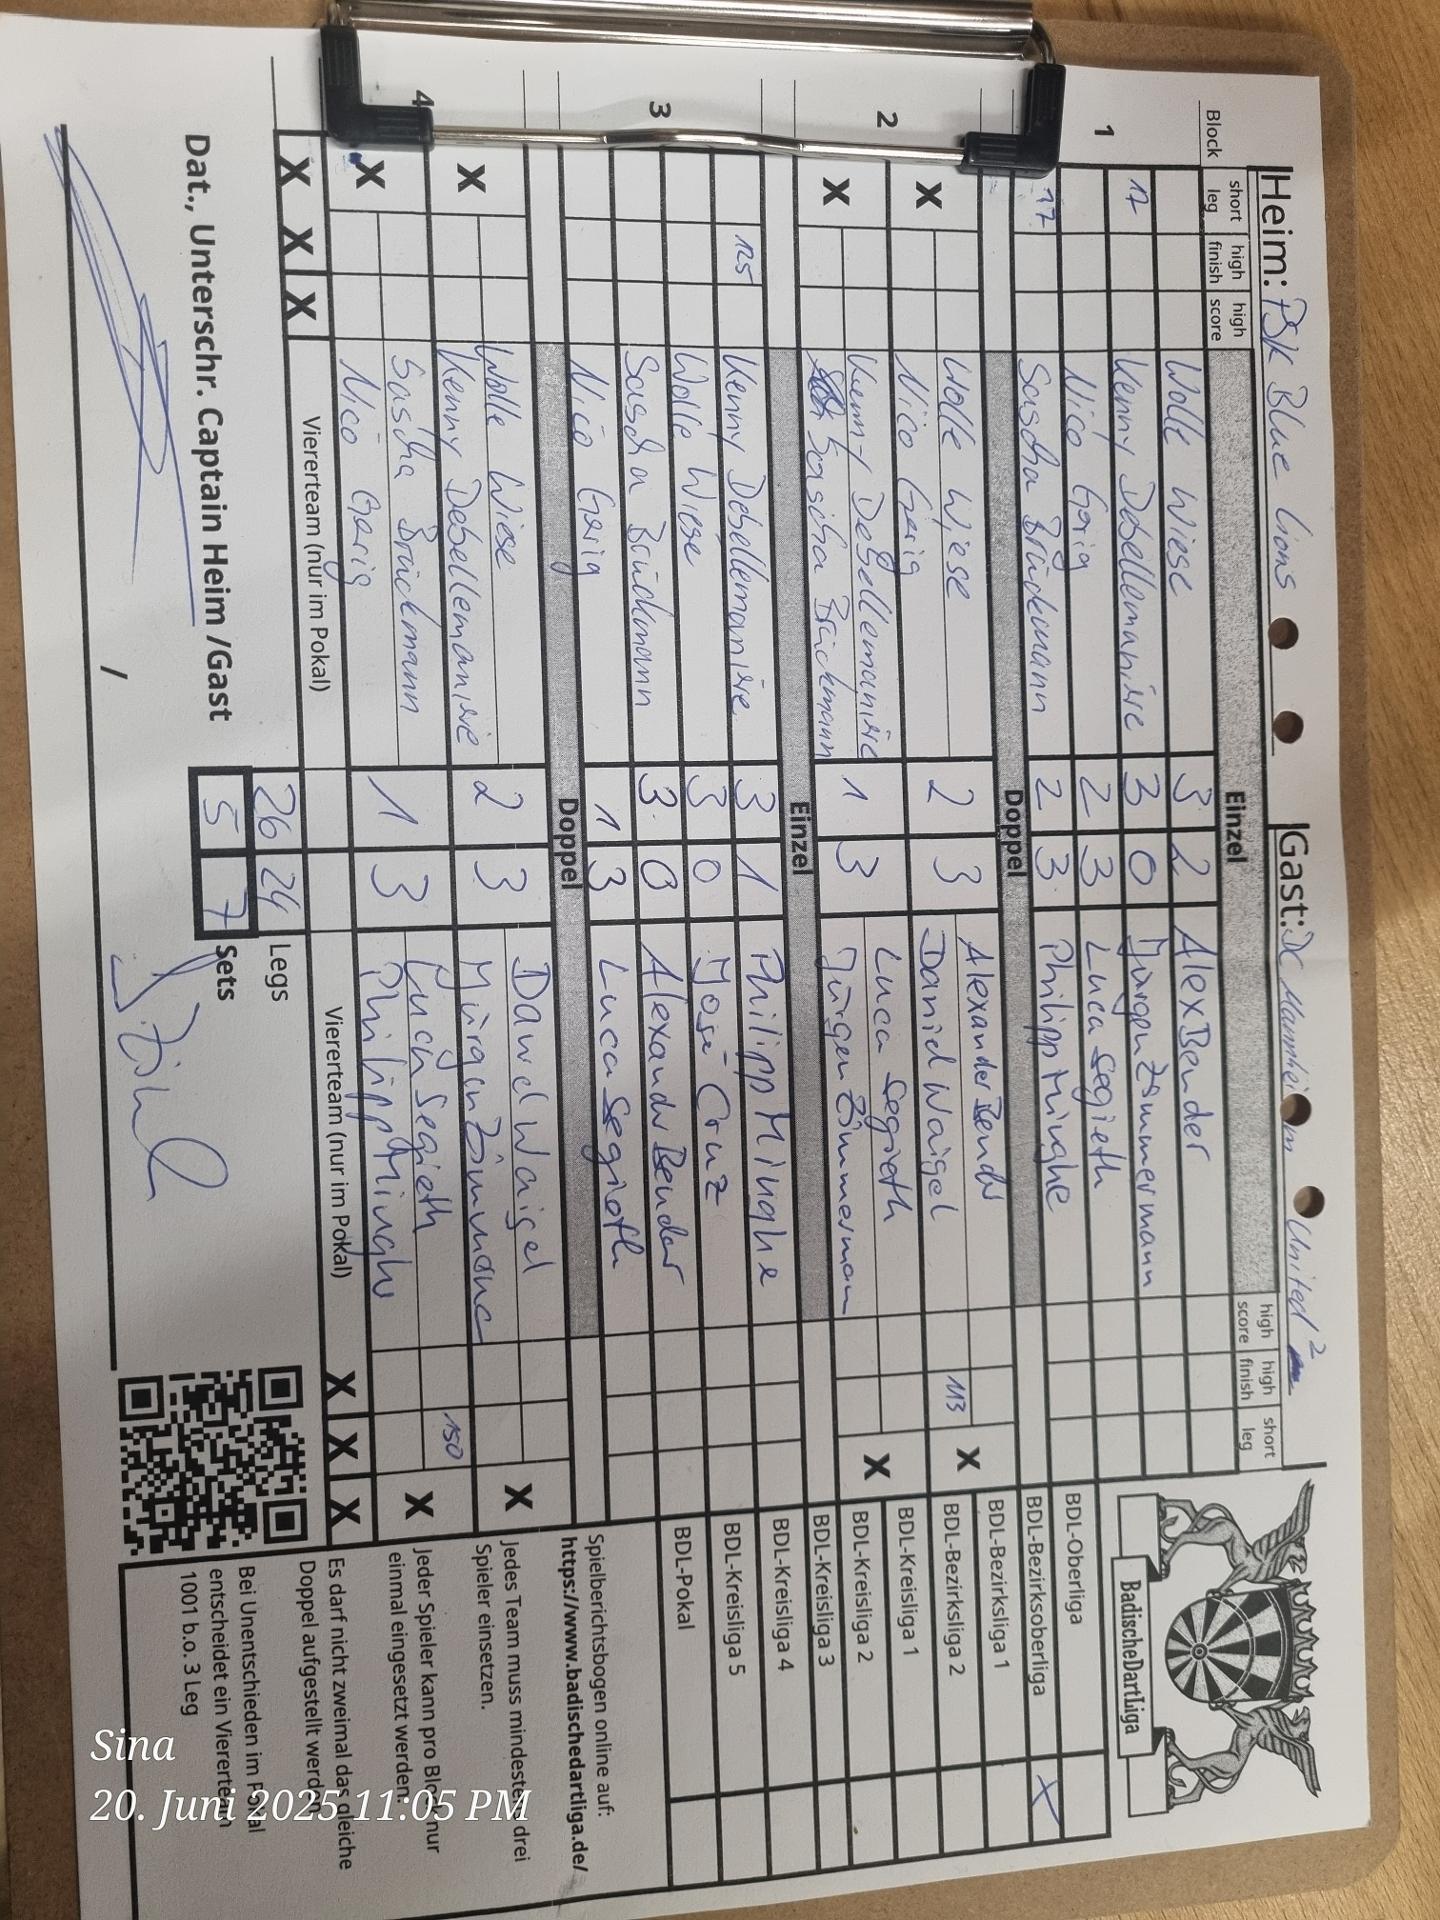 Heim: PSK Blue Lions Gast: DC Mannheim United 2
Block short leg high finish high score Einzel high score high finish short leg
1
Wolle Wiese 3 2 Alex Bender
17 Kenny Debellemanière 3 0 Jürgen Zimmermann
Nico Gerig 2 3 Luca Segieth
17 Sascha Brückmann 2 3 Philipp Minghe
Doppel
2
X Wolle Wiese 2 3 Alexander Bender X
Nico Gerig Daniel Waigel 113
X Kenny Debellemanière 1 3 Luca Segieth X
Sascha Brückmann Jürgen Zimmerman
Einzel
3
125 Kenny Debellemanière 3 1 Philipp Minghe
Wolle Wiese 3 0 José Cruz
Sascha Brückmann 3 0 Alexander Bender
Nico Gerig 1 3 Luca Segieth
Doppel
4
X Wolle Wiese 2 3 Daniel Waigel X
Kenny Debellemanière Jürgen
X Sascha Brückmann 1 3 Luca Segieth 150 X
Nico Gerig Philipp Minghe
X X X Viererteam (nur im Pokal) Viererteam (nur im Pokal) X X X
26 24 Legs
Dat., Unterschr. Captain Heim /Gast 5 7 Sets
/
BadischeDartLiga
BDL-Oberliga
BDL-Bezirksoberliga X
BDL-Bezirksliga 1
BDL-Bezirksliga 2
BDL-Kreisliga 1
BDL-Kreisliga 2
BDL-Kreisliga 3
BDL-Kreisliga 4
BDL-Kreisliga 5
BDL-Pokal
Spielberichtsbogen online auf:
https://www.badischedartliga.de/
Jedes Team muss mindestens drei
Spieler einsetzen.
Jeder Spieler kann pro Block nur
einmal eingesetzt werden.
Es darf nicht zweimal das gleiche
Doppel aufgestellt werden.
Bei Unentschieden im Pokal
entscheidet ein Viererteam
1001 b.o. 3 Leg
Sina
20. Juni 2025 11:05 PM